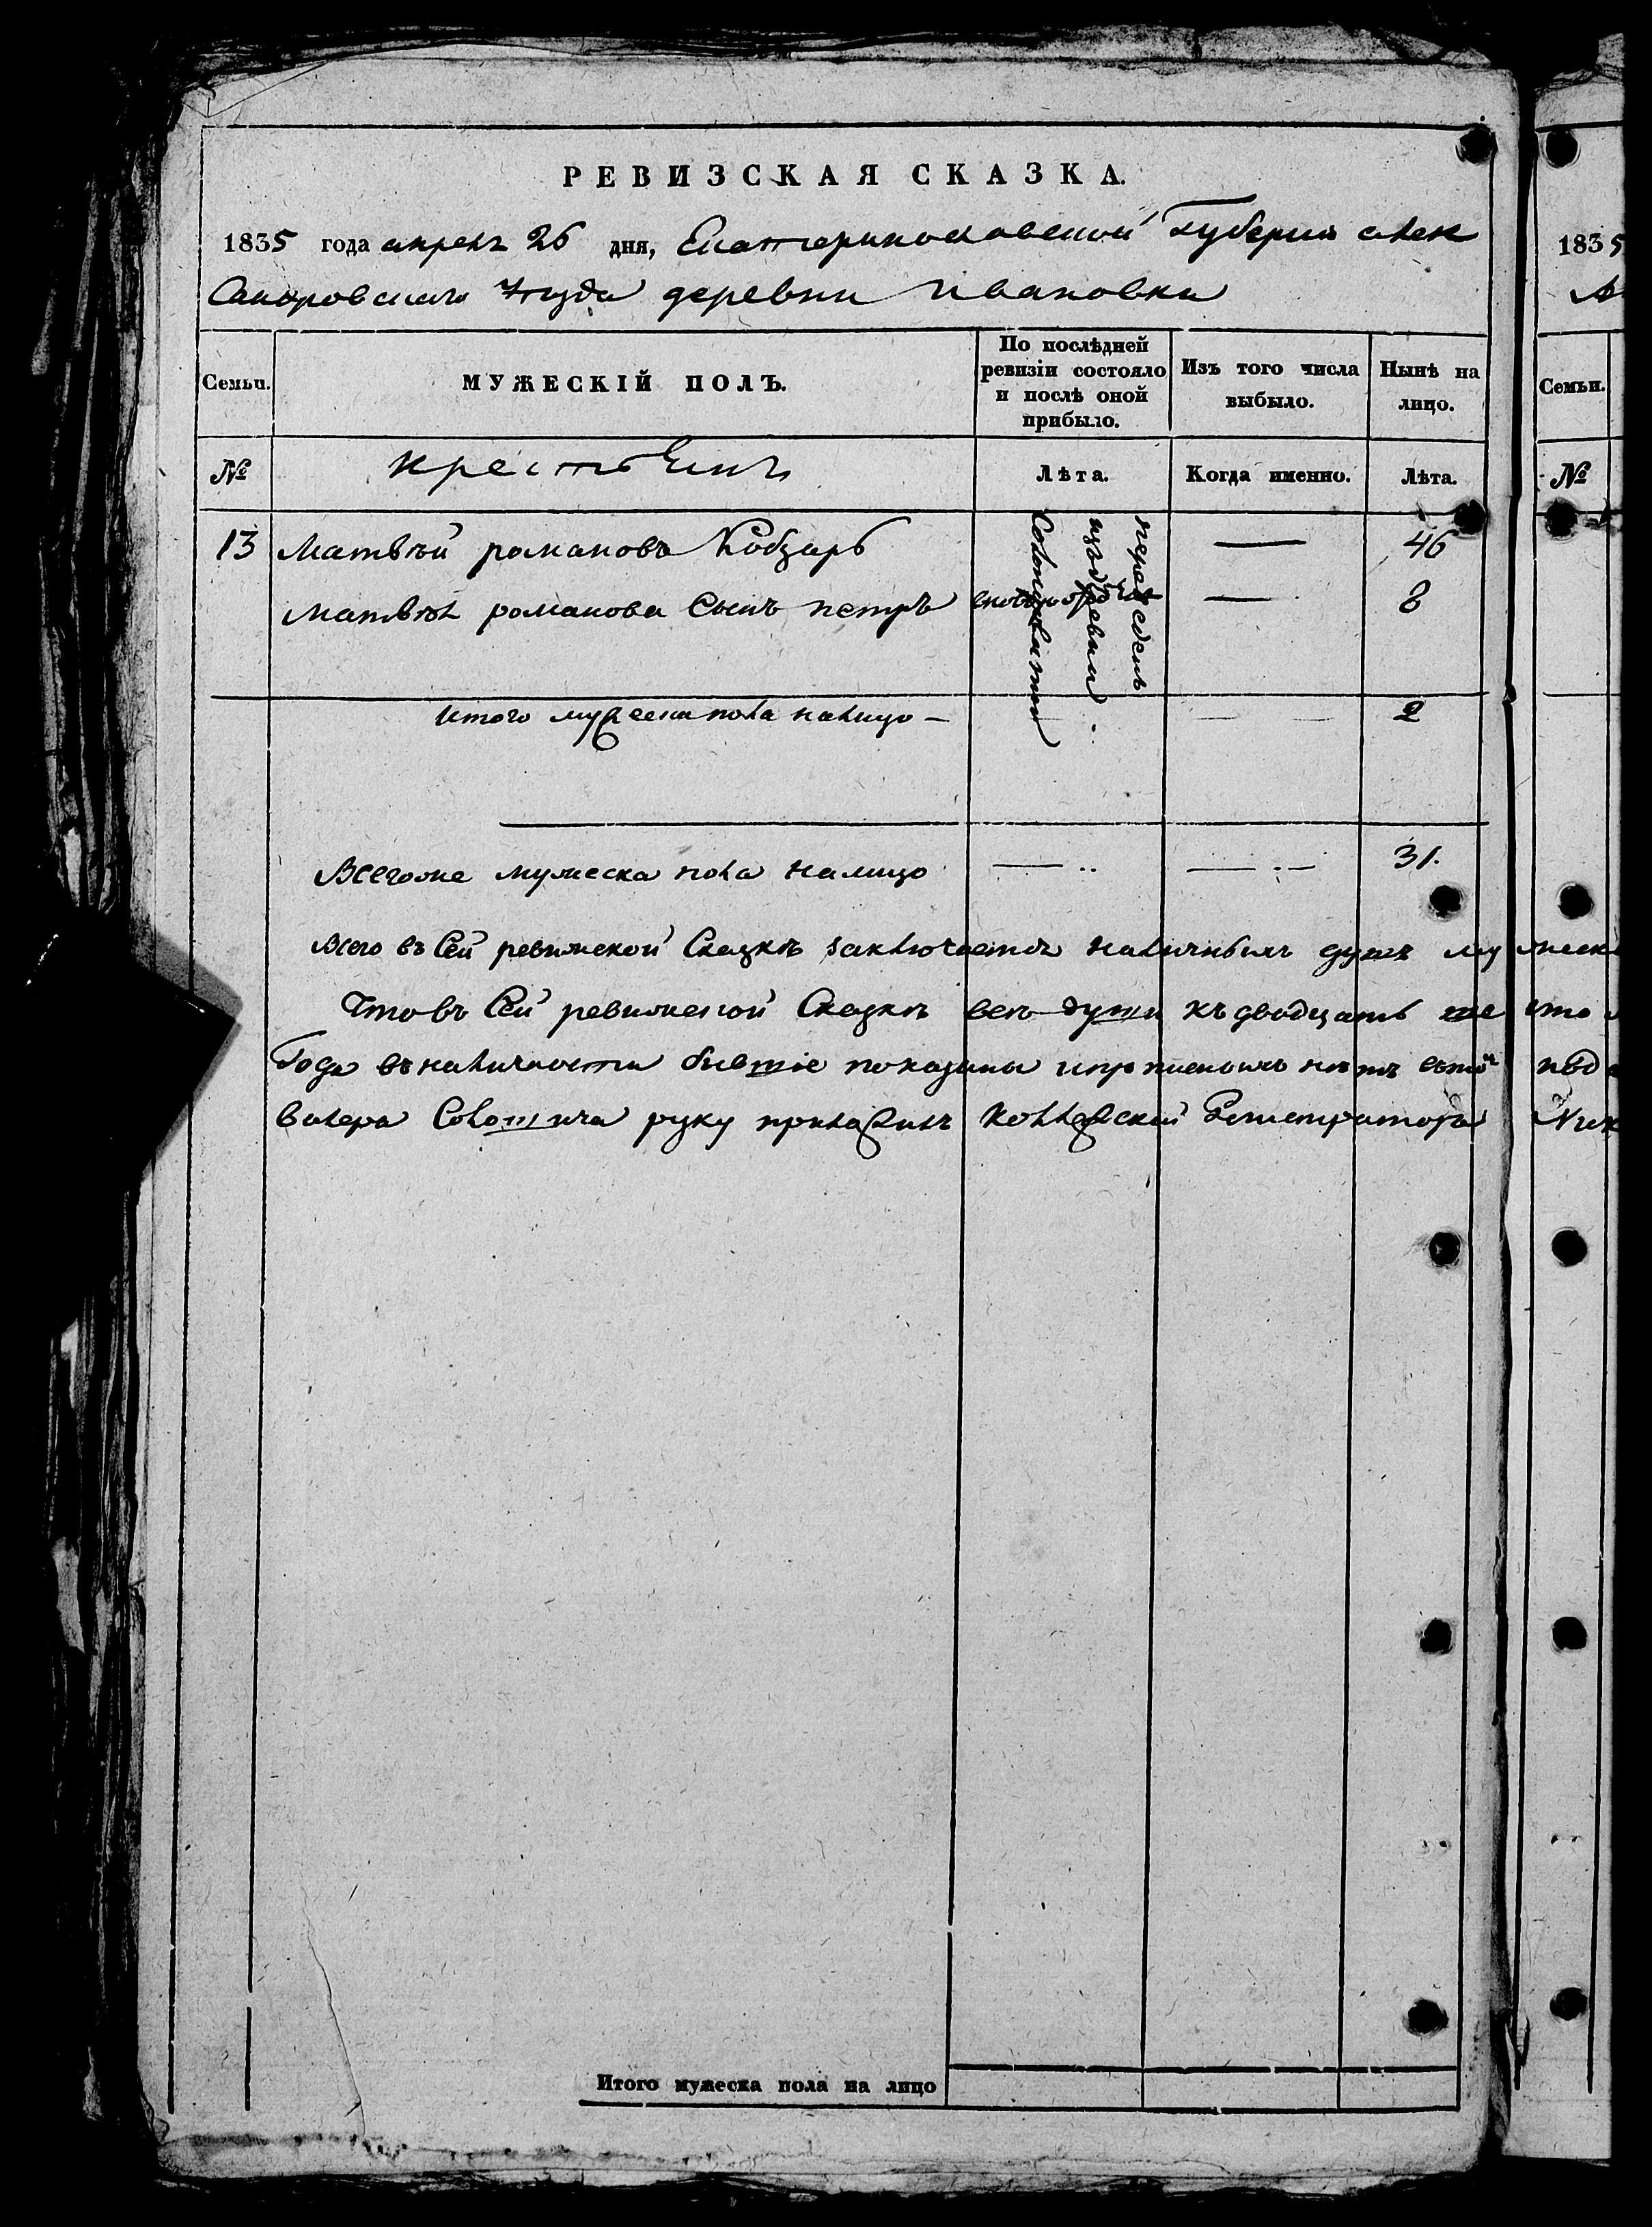 РЕВИЗСКАЯ СКАЗКА.
1835 года апреля 26 дня, Екатеринославской Губернии Алек
Сандровскаго Уезда деревни Ивановки
Семьи.
МУЖЕСКІЙ ПОЛЪ.
По послѣдней ревизіи состояло и послѣ оной прибыло.
Изъ того числа выбыло.
Нынѣ на лицо.
№
крестьянъ
Лѣта.
Когда именно.
Лѣта.
13 Матвѣй романовъ Кобзарь — 46
Матвѣя романова Сынъ петръ — 8
переведенъ
изъ деревни
Итого мужеска пола налицо — 2
Всегоже мужеска пола налицо 31.
Всего въ Сей ревижской Сказкѣ заключается наличныхъ душъ му
Что въ Сей ревижской Сказкѣ всѣ души къ двадцать ше
Года въ наличности бывшіе показаны и прописныхъ нѣтъ
руку приложилъ Коллежскій Регистраторъ
Итого мужеска пола на лицо
1835
Семьи.
№